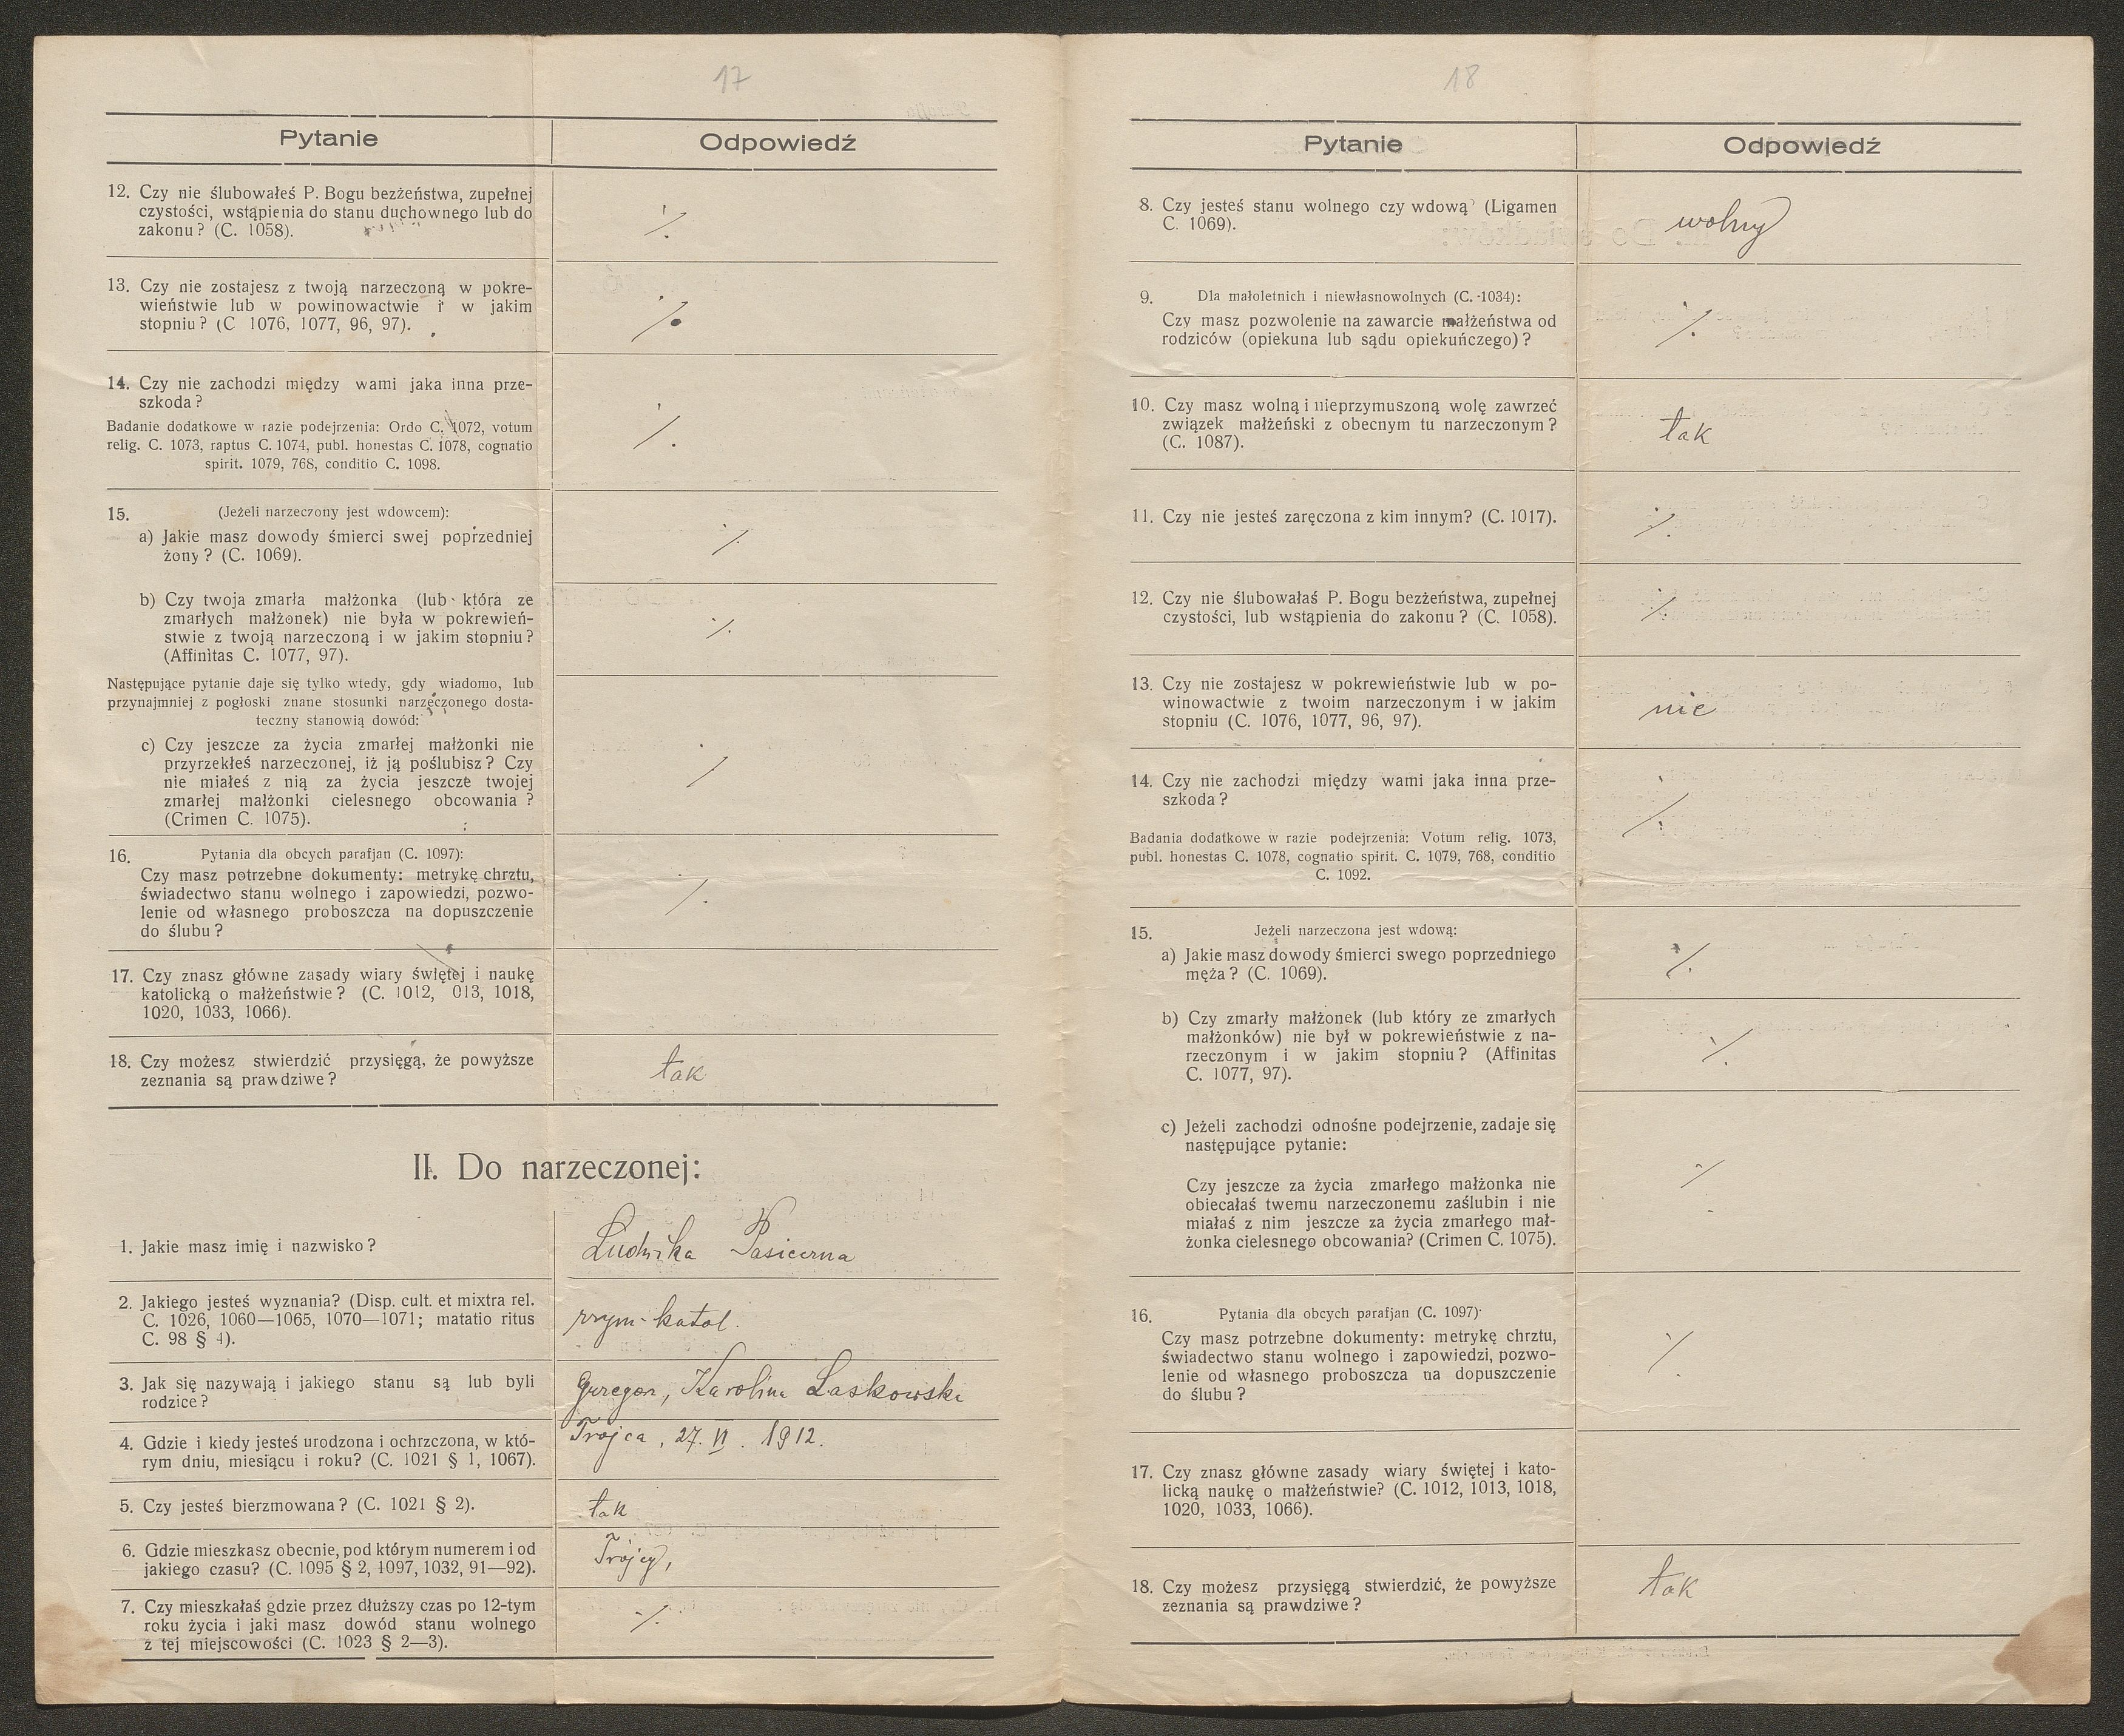 17
Pytanie
Odpowiedź
12. Czy nie ślubowałeś P. Bogu bezżeństwa, zupełnej
czystości, wstąpienia do stanu duchownego lub do
zakonu? (C. 1058).
./.
13. Czy nie zostajesz z twoją narzeczoną w pokre-
wieństwie lub w powinowactwie i w jakim
stopniu? (C 1076, 1077, 96, 97).
./.
14. Czy nie zachodzi między wami jaka inna prze-
szkoda?
Badanie dodatkowe w razie podejrzenia: Ordo C. 1072, votum
relig. C. 1073, raptus C. 1074, publ. honestas C. 1078, cognatio
spirit. 1079, 768, conditio C. 1098.
./.
15. (Jeżeli narzeczony jest wdowcem):
a) Jakie masz dowody śmierci swej poprzedniej
żony? (C. 1069).
./.
b) Czy twoja zmarła małżonka (lub która ze
zmarłych małżonek) nie była w pokrewień-
stwie z twoją narzeczoną i w jakim stopniu?
(Affinitas C. 1077, 97).
./.
Następujące pytanie daje się tylko wtedy, gdy wiadomo, lub
przynajmniej z pogłoski znane stosunki narzeczonego dosta-
teczny stanowią dowód:
c) Czy jeszcze za życia zmarłej małżonki nie
przyrzekłeś narzeczonej, iż ją poślubisz? Czy
nie miałeś z nią za życia jeszcze twojej
zmarłej małżonki cielesnego obcowania?
(Crimen C. 1075).
./
16. Pytania dla obcych parafjan (C. 1097):
Czy masz potrzebne dokumenty: metrykę chrztu,
świadectwo stanu wolnego i zapowiedzi, pozwo-
lenie od własnego proboszcza na dopuszczenie
do ślubu?
./.
17. Czy znasz główne zasady wiary świętej i naukę
katolicką o małżeństwie? (C. 1012, 013, 1018,
1020, 1033, 1066).
18. Czy możesz stwierdzić przysięgą, że powyższe
zeznania są prawdziwe?
tak
II. Do narzeczonej:
1. Jakie masz imię i nazwisko?
Ludwika Pasierna
2. Jakiego jesteś wyznania? (Disp. cult. et mixtra rel.
C. 1026, 1060—1065, 1070—1071; matatio ritus
C. 98 § 4).
rzym-katol.
3. Jak się nazywają i jakiego stanu są lub byli
rodzice?
Grzegorz, Karolina Laskowska
4. Gdzie i kiedy jesteś urodzona i ochrzczona, w któ-
rym dniu, miesiącu i roku? (C. 1021 § 1, 1067).
Trójca, 27. VI. 1912.
5. Czy jesteś bierzmowana? (C. 1021 § 2).
tak
6. Gdzie mieszkasz obecnie, pod którym numerem i od
jakiego czasu? (C. 1095 § 2, 1097, 1032, 91—92).
Trójcy,
7. Czy mieszkałaś gdzie przez dłuższy czas po 12-tym
roku życia i jaki masz dowód stanu wolnego
z tej miejscowości (C. 1023 § 2—3).
./.
18
Pytanie
Odpowiedź
8. Czy jesteś stanu wolnego czy wdową? (Ligamen
C. 1069).
wolny
9. Dla małoletnich i niewłasnowolnych (C. 1034):
Czy masz pozwolenie na zawarcie małżeństwa od
rodziców (opiekuna lub sądu opiekuńczego)?
./.
10. Czy masz wolną i nieprzymuszoną wolę zawrzeć
związek małżeński z obecnym tu narzeczonym?
(C. 1087).
tak
11. Czy nie jesteś zaręczona z kim innym? (C. 1017).
./.
12. Czy nie ślubowałaś P. Bogu bezżeństwa, zupełnej
czystości, lub wstąpienia do zakonu? (C. 1058).
./.
13. Czy nie zostajesz w pokrewieństwie lub w po-
winowactwie z twoim narzeczonym i w jakim
stopniu (C. 1076, 1077, 96, 97).
nie
14. Czy nie zachodzi między wami jaka inna prze-
szkoda?
Badania dodatkowe w razie podejrzenia: Votum relig. 1073,
publ. honestas C. 1078, cognatio spirit. C. 1079, 768, conditio
C. 1092.
./.
15. Jeżeli narzeczona jest wdową:
a) Jakie masz dowody śmierci swego poprzedniego
męża? (C. 1069).
./.
b) Czy zmarły małżonek (lub który ze zmarłych
małżonków) nie był w pokrewieństwie z na-
rzeczonym i w jakim stopniu? (Affinitas
C. 1077, 97).
./.
c) Jeżeli zachodzi odnośne podejrzenie, zadaje się
następujące pytanie:
Czy jeszcze za życia zmarłego małżonka nie
obiecałaś twemu narzeczonemu zaślubin i nie
miałaś z nim jeszcze za życia zmarłego mał-
żonka cielesnego obcowania? (Crimen C. 1075).
./.
16. Pytania dla obcych parafjan (C. 1097)
Czy masz potrzebne dokumenty: metrykę chrztu,
świadectwo stanu wolnego i zapowiedzi, pozwo-
lenie od własnego proboszcza na dopuszczenie
do ślubu?
./.
17. Czy znasz główne zasady wiary świętej i kato-
licką naukę o małżeństwie? (C. 1012, 1013, 1018,
1020, 1033, 1066).
18. Czy możesz przysięgą stwierdzić, że powyższe
zeznania są prawdziwe?
tak